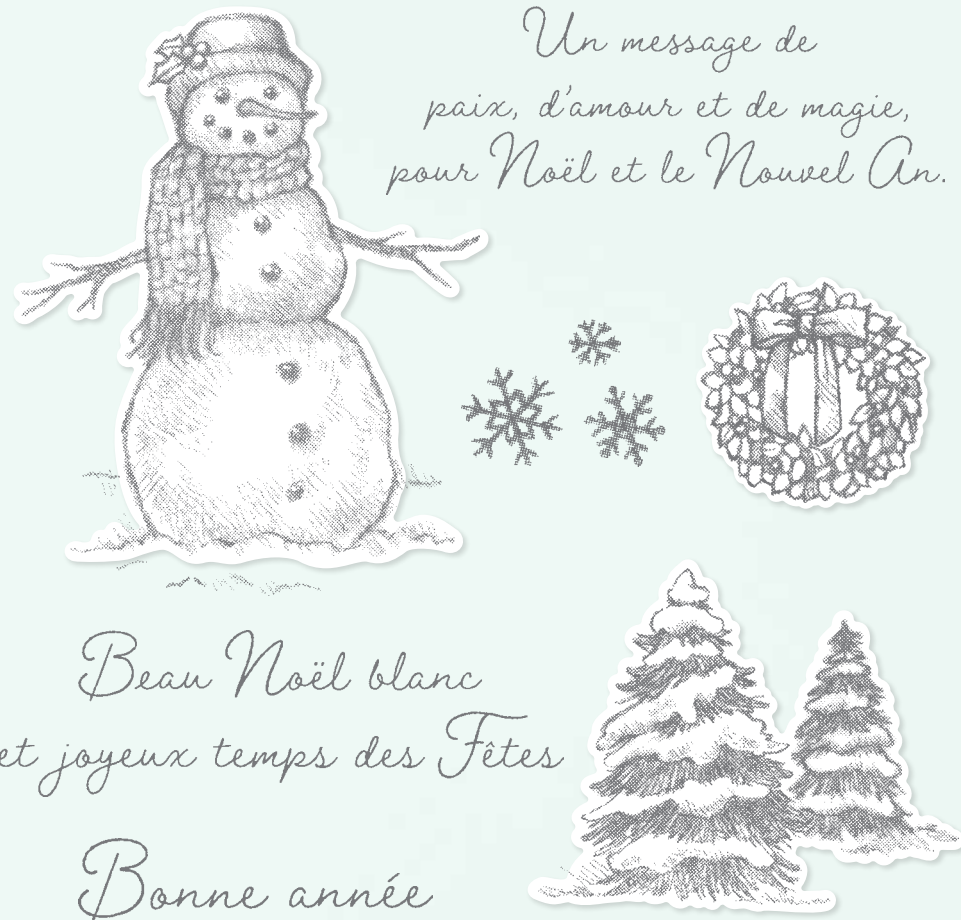 Un message de
paix, d'amour et de magie,
pour Noël et le Nouvel An.
Beau Noël blanc
et joyeux temps des Fêtes
Bonne année